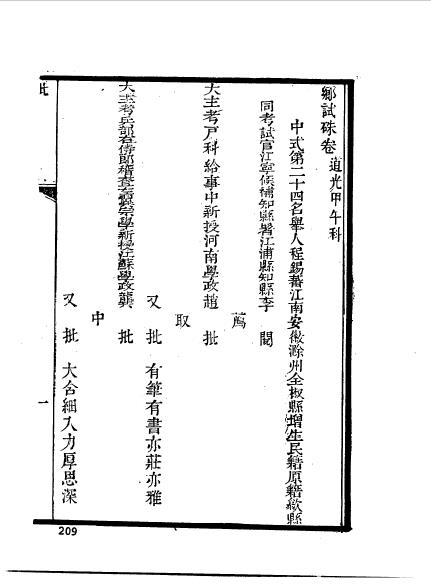 鄉試硃卷 道光甲午科
中式第二十四名舉人程錫蕃江南安徽滁州全椒縣增生民籍原籍歙縣
同考試官江寧候補知縣署江浦縣知縣李 閱
薦
大主考戶科給事中新授河南學政趙 批
取
又批 有筆有書亦莊亦雅
大主考兵部右侍郎稽查右翼宗學新授江蘇學政龔 批
中
又批 大含細入力厚思深
批
一
209